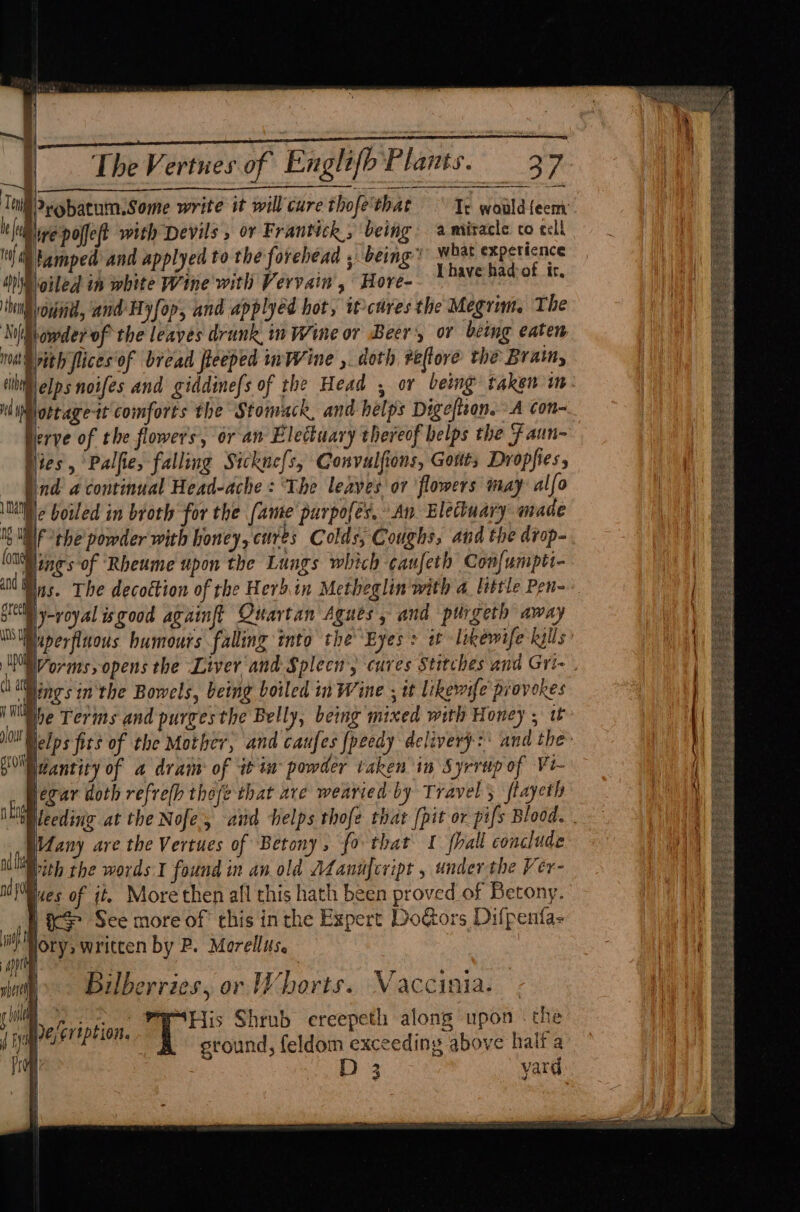 The Vertues of Engliſh Plants. 37
Probatum. Some write it will cure thoſe that It would ſeem
are poſſeſt with Devils, or Frantick, being a miracle to tell
ſtamped and applyed to the forehead; being what experience
boiled in white Wine with Vervain, Hore- I have had of it.
hound, and Hyſop, and applyed hot, it cures the Megrim. The
powder of the leaves drunk in Wine or Beer, or being eaten
with ſlices of bread ſteeped in Wine, doth reſtore the Brain,
helps noiſes and giddineſs of the Head, or being taken in
pottage it comforts the Stomack, and helps Digeſtion. A con-
ſerve of the flowers, or an Electuary thereof helps the Jaun-
dies, Palſie, falling Sickneſs, Convulſions, Gout, Dropſies,
and a continual Head-ache: The leaves or flowers may alſo
be boiled in broth for the ſame purpoſes. An Electuary made
of the powder with honey, cures Colds, Coughs, and the drop-
pings of Rheume upon the Lungs which cauſeth Conſumpti-
ons. The decoction of the Herb in Metheglin with a little Pen-
y-royal is good againſt Quartan Agues, and purgeth away
ſuperfluous humours falling into the Eyes: it likewiſe kills
Worms, opens the Liver and Spleen, cures Stitches and Gri-
pings in the Bowels, being boiled in Wine; it likewiſe provokes
the Terms and purges the Belly, being mixed with Honey; it
helps fits of the Mother, and cauſes ſpeedy delivery: and the
quantity of a dram of it in powder taken in Syrrup of Vi-
negar doth refreſh thoſe that are wearied by Travel; ſtayeth
bleeding at the Noſe, and helps thoſe that ſpit or piſs Blood.
Many are the Vertues of Betony, ſo that I ſhall conclude
with the words I found in an old Manuſcript, under the Ver-
tues of it. More then all this hath been proved of Betony.
☞ See more of this in the Expert Doctors Diſpenſa-
tory, written by P. Morellus.
Bilberries, or Whorts. Vaccinia.
Deſcription. THis Shrub creepeth along upon the
ground, ſeldom exceeding above half a
D 3 yard